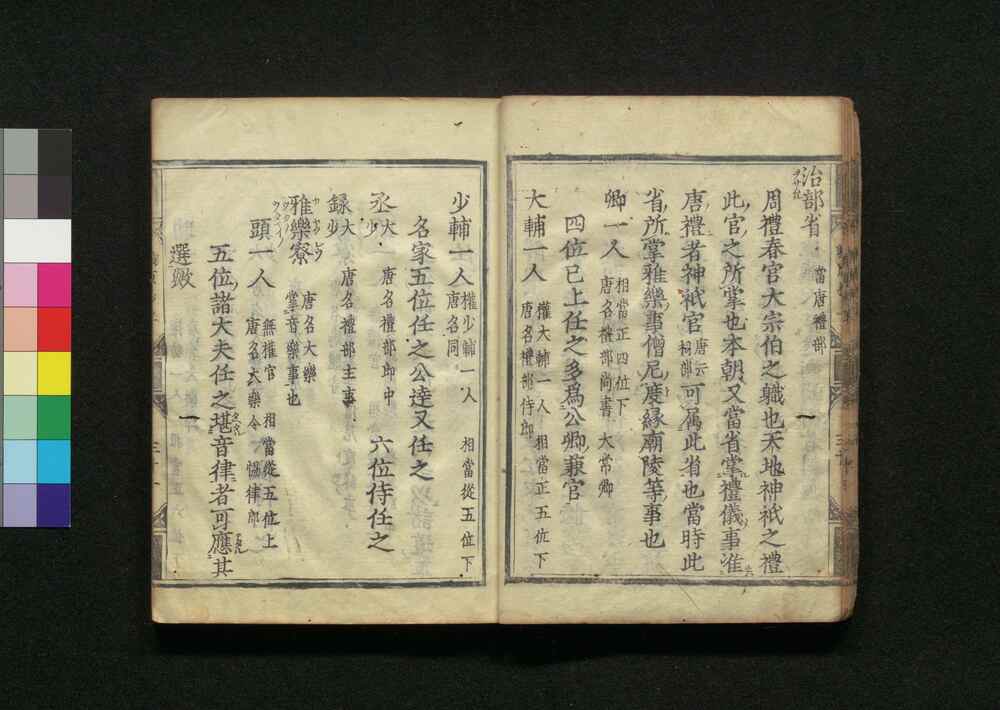 治部省 當唐禮部
周禮春官大宗伯之職也天地神祇之禮
此官之所掌也本朝又當省掌禮儀事准
唐禮者神祇官 唐云祠部 可属此省也當時此
省所掌雅樂事僧尼度縁廟陵等事也
卿一人 相當正四位下 唐名禮部尚書 大常卿
四位已上任之多爲公卿兼官
大輔一人 權大輔一人 相當正五位下 唐名禮部侍郎
少輔一人 權少輔一人 相當從五位下 唐名同
名家五位任之公達又任之
丞 大 少 唐名禮部郎中 六位侍任之
録 大 少 唐名禮部主事
雅樂寮 唐名大樂 掌音樂事也
頭一人 無權官 相當從五位上 唐名大樂令 協律郎
五位諸大夫任之堪音律者可應其
選歟